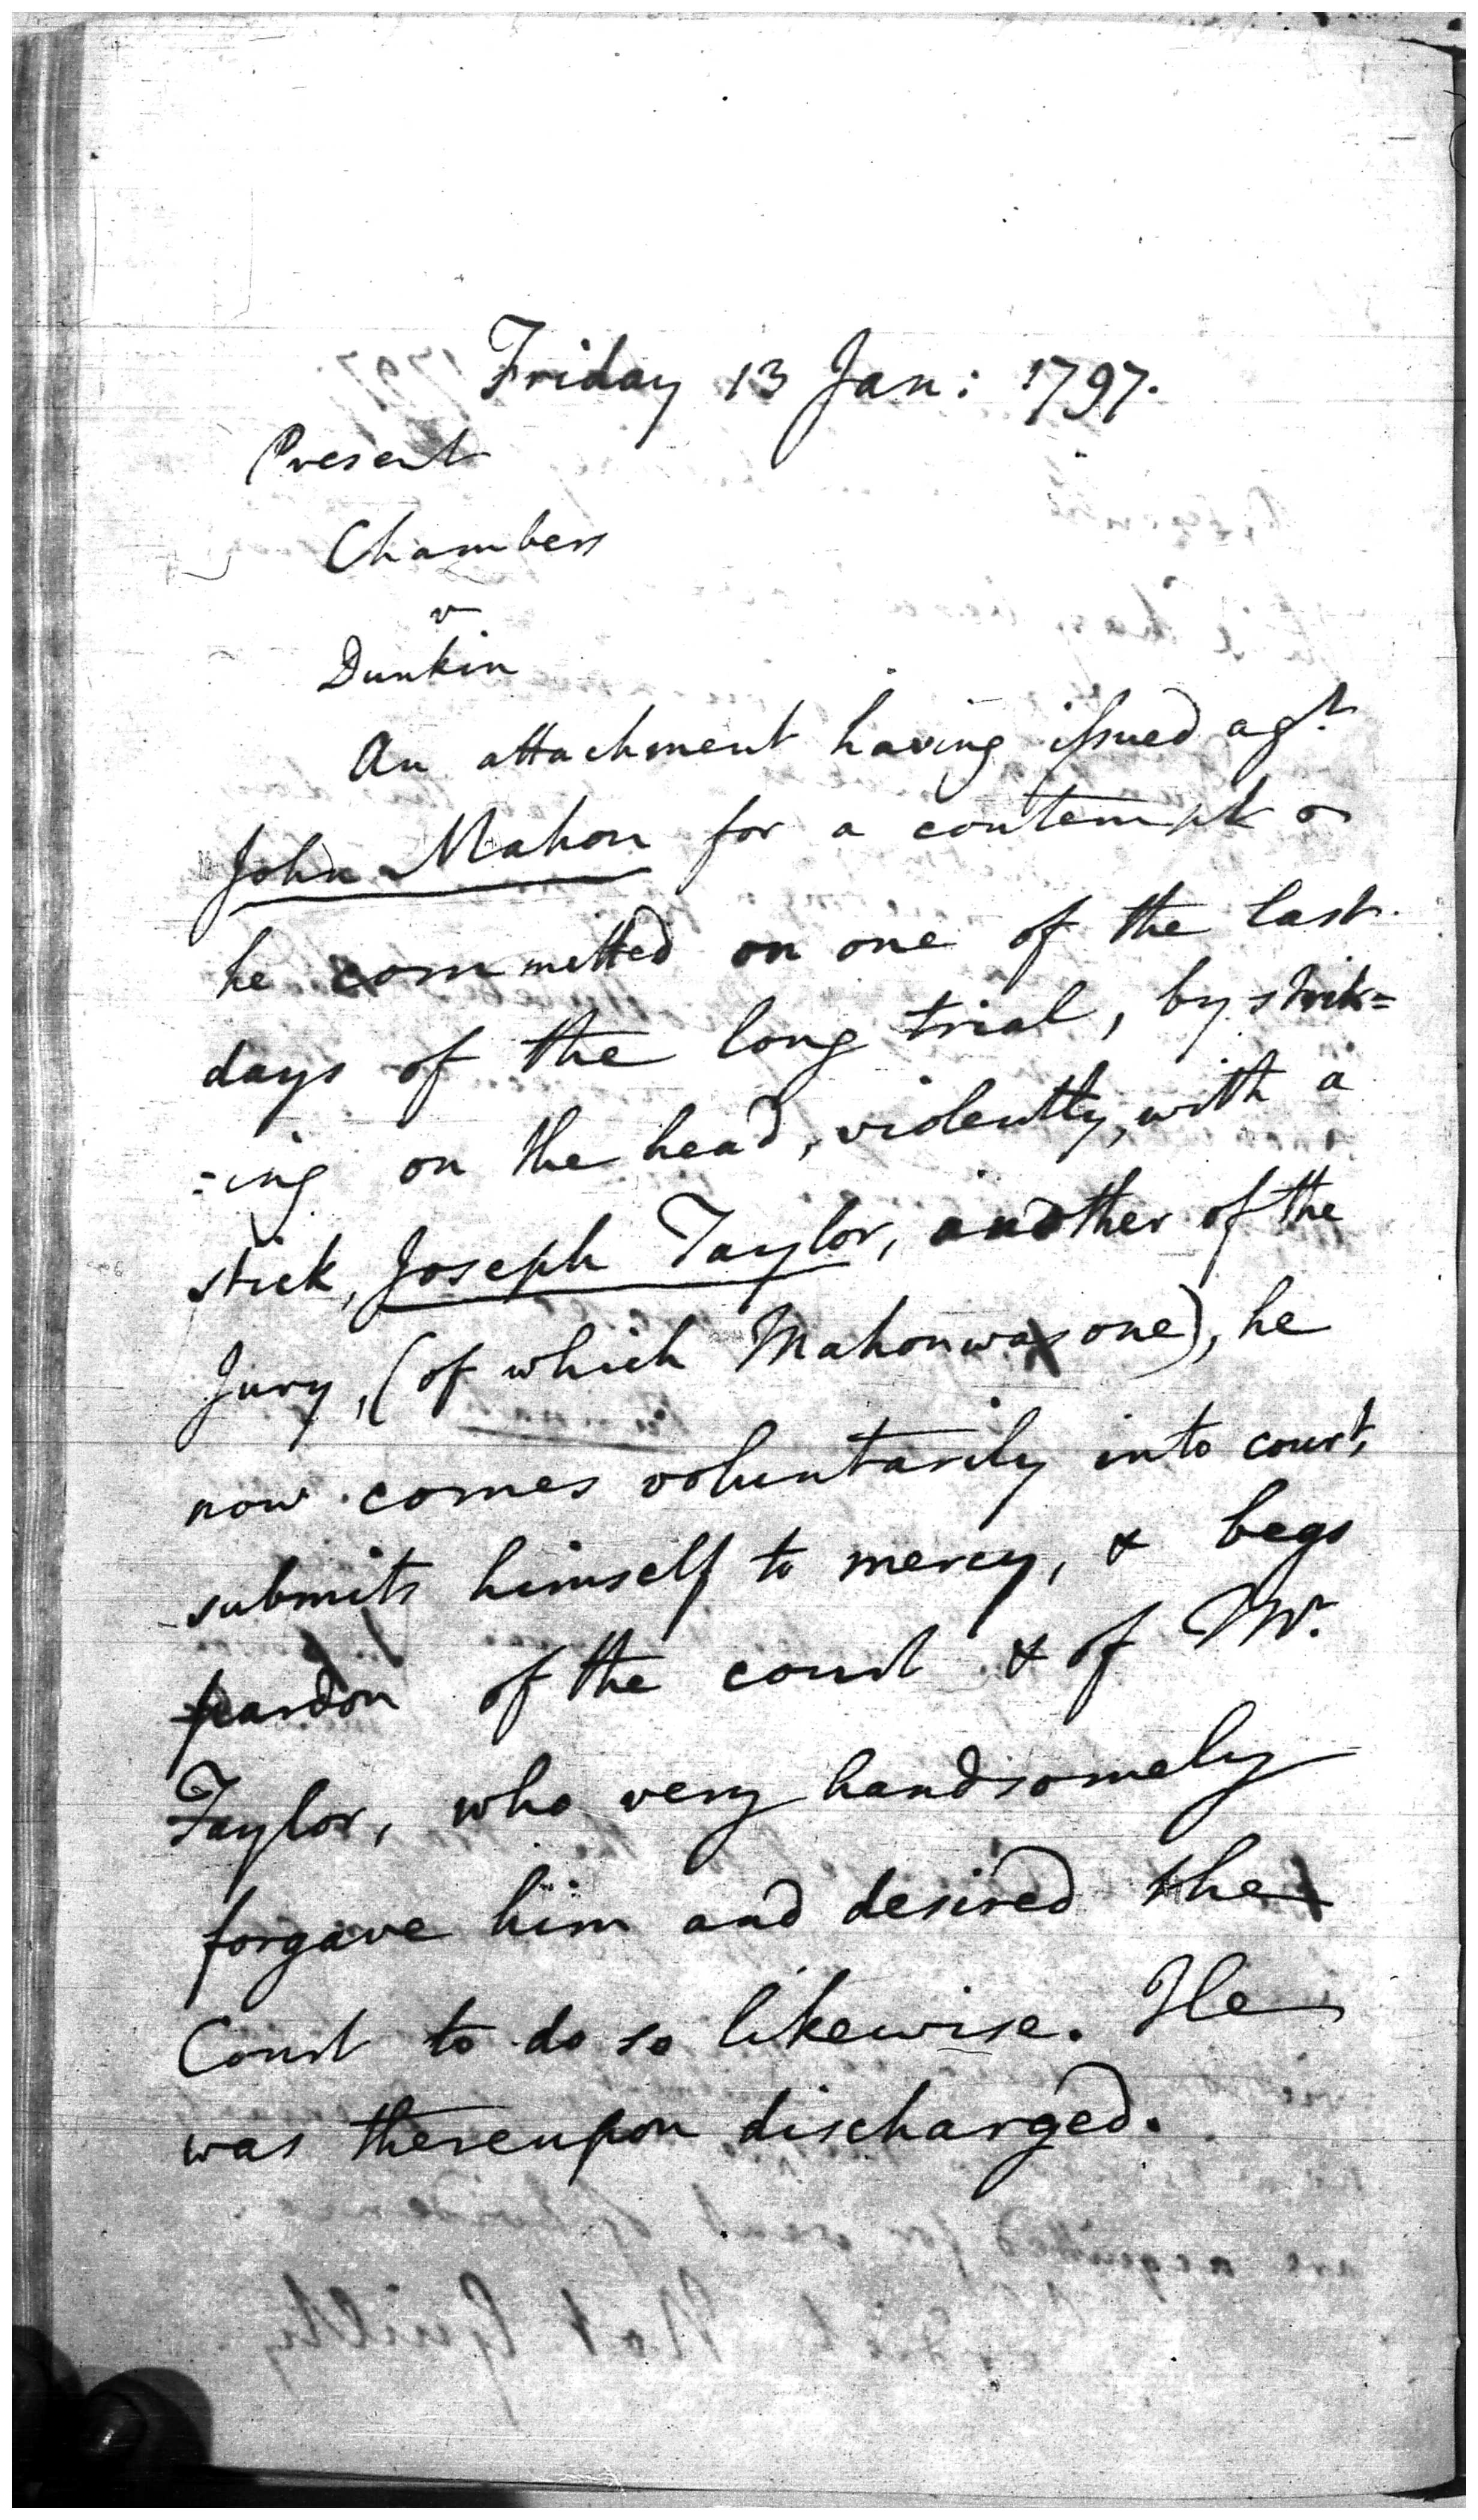 Friday 13 Jan: 1797.
Present
Chambers
v
Dunkin
An attachment having issued agt
John Mahon for a contempt
he committed on one of the last
days of the long trial, by strik=
=ing on the head, violently, with a
stick, Joseph Taylor, another of the
Jury, (of which Mahon was one), he
now comes voluntarily into court,
submits himself to mercy, & begs
pardon of the court & of Mr.
Taylor, who very handsomely
forgave him and desired the
Court to do so likewise. He
was thereupon discharged.